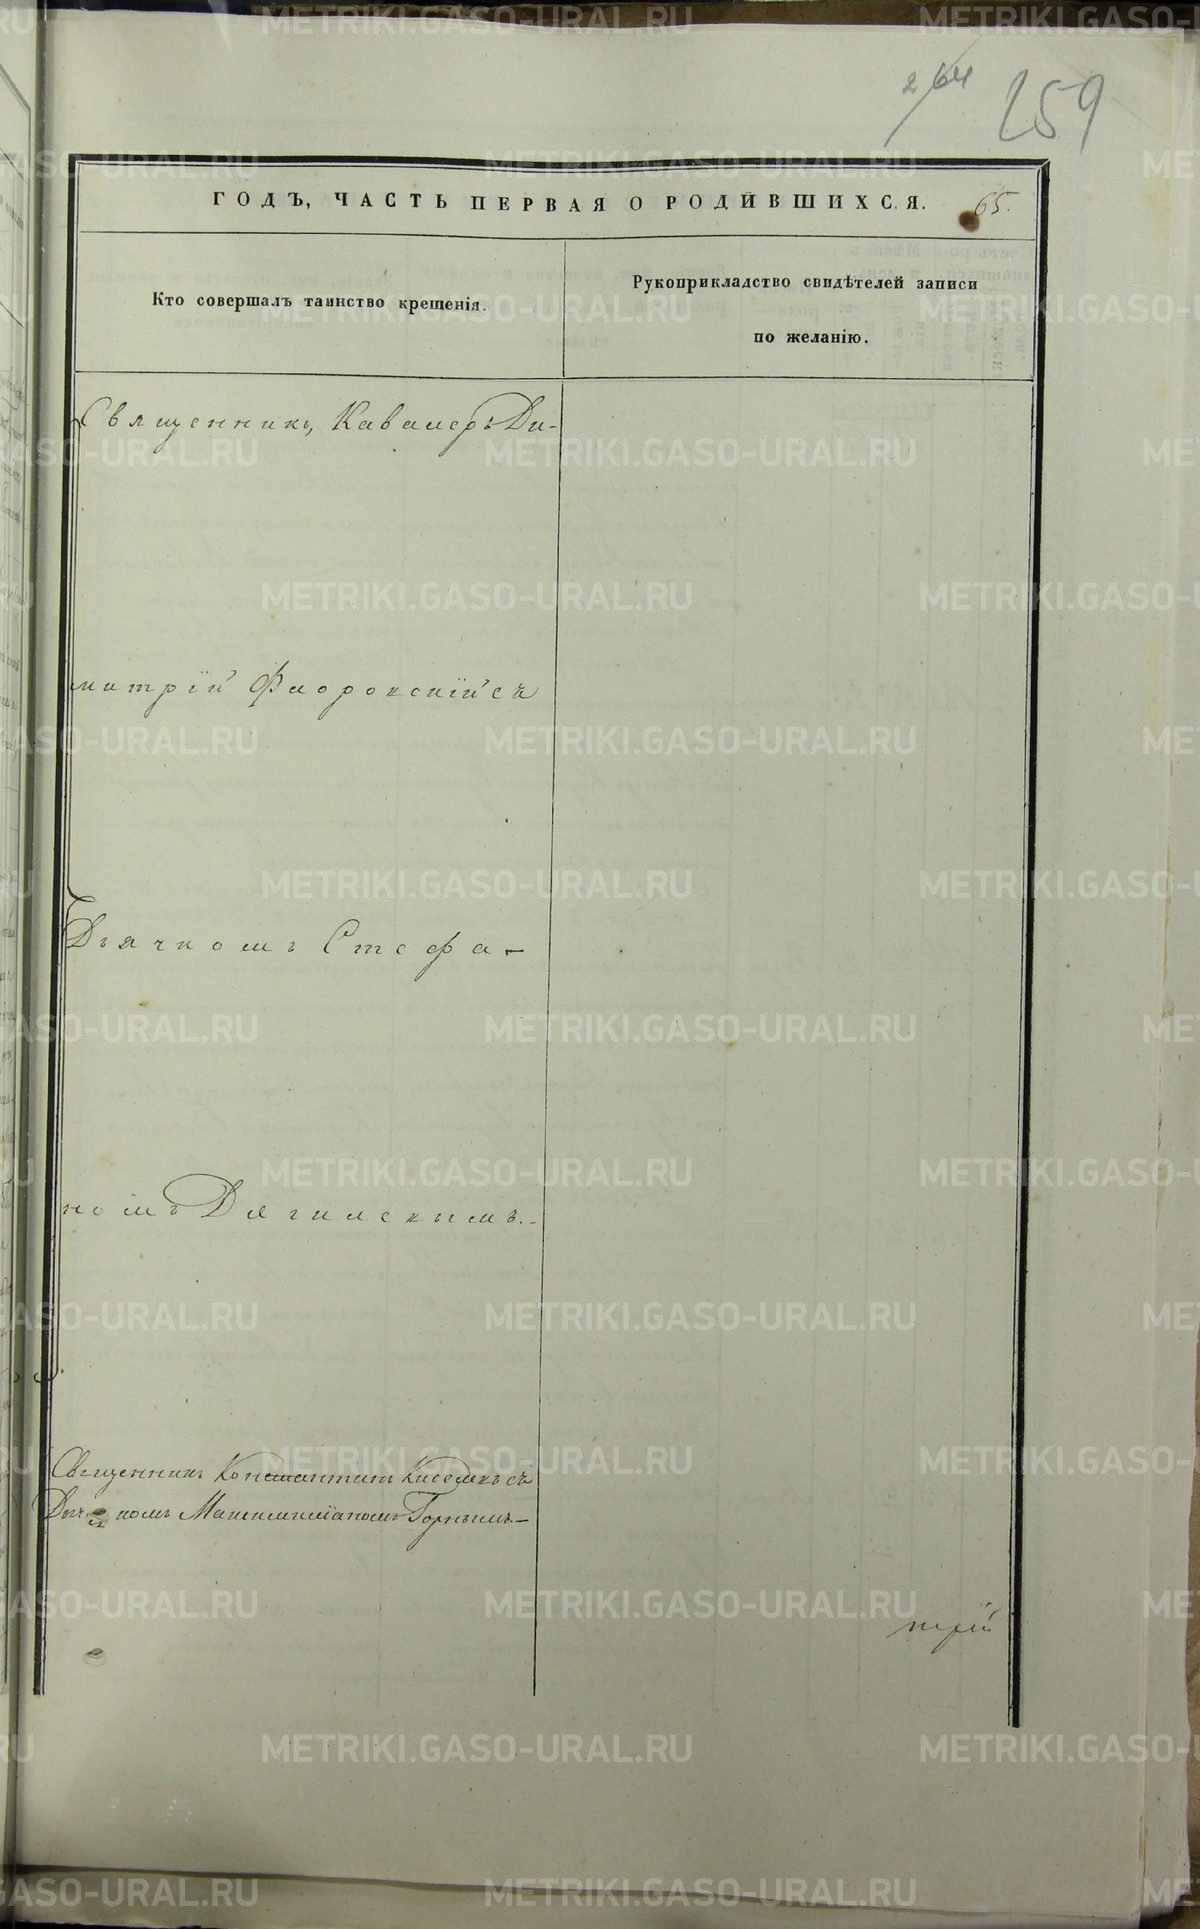 264 259
ГОДЪ, ЧАСТЬ ПЕРВАЯ О РОДИВШИХСЯ. 65.
Кто совершалъ таинство крещенія.
Рукоприкладство свидѣтелей записи
по желанію.
Священникъ, Кавалеръ Ди-
митрій Флоровскій съ
Дьячкомъ Стефа-
номъ Дягилевымъ.-
Священникъ Константинъ Киселевъ съ
Дьячкомъ Максимиліаномъ Горнымъ.-
METRIKI.GASO-URAL.RU